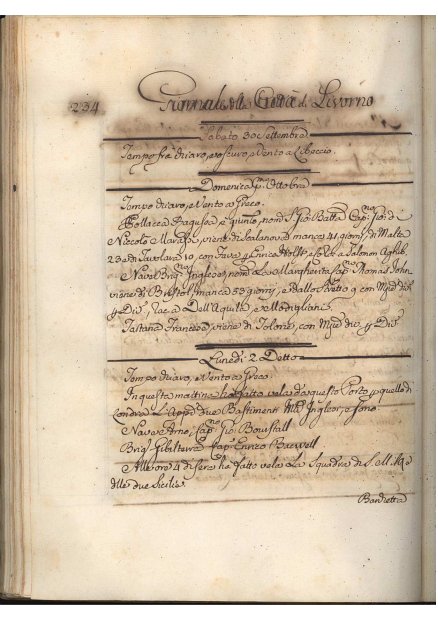 234. Giornale della Città di Livorno
Sabato 30 Settembre
Tempo frà chiaro, e oscuro, Vento a Libeccio.
Domenica p.º Ottobre
Tempo chiaro, e Vento a Greco.
Pollacca Ragusea è giunto, nom.ª S. Gio: Batta Cap.no Gio: di
Niccolò viene di Scalanova manca 41 giorni, di Malta
23 e di 10, con Fava p Enrico e Solomon
Nave Brig.no Inglese, nom. La Margherita Cap.no Thomas John
viene di Bristol, manca 33 giorni, e dallo Stretto 9 con Mjie die
p Div. Rac. a Dell'Aquila, e Modigliani.
Tartana Francese, viene di Tolone, con Mjie div. p Div.
Lunedi 2 Detto
Tempo chiaro, e Vento a Greco.
In questa mattina ha fatto vela da questo Porto p quello di
Londra L'App. due Bastimenti Inglesi, e sono
Nave Arno, Cap.no Gio:
Brig. Gibilterra Cap.no Enrico
Alle ore 4 di sera ha fatto vela La Squadra di S. M. il Rè
delle due Sicilie.
Bandietta